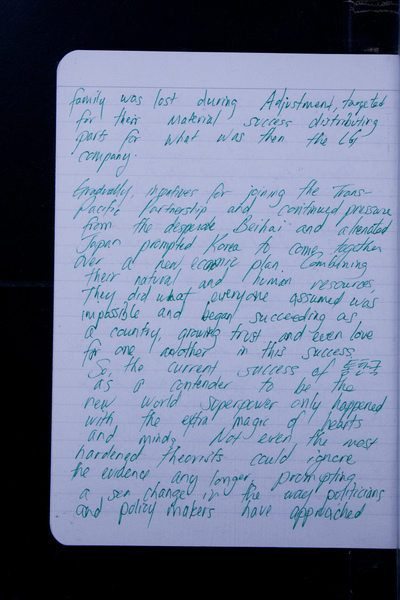 family was lost during Adjustment, targeted
for their material success distributing
parts for what was then the LG
company.
Gradually, incentives for joining the Trans-
Pacific Partnership and continued pressure
from the desperate Beihai and alienated
Japan prompted Korea to come together
over a new economic plan. Combining
their natural and human resources,
They did what everyone assumed was
impossible and began succeeding as
a country, growing trust and even love
for one another in this success.
So, the current success of
as a contender to be the
new world superpower only happened
with the extra magic of hearts
and minds. Not even the most
hardened theorists could ignore
the evidence any longer, prompting
a sea change in the way politicians
and policy makers have approached